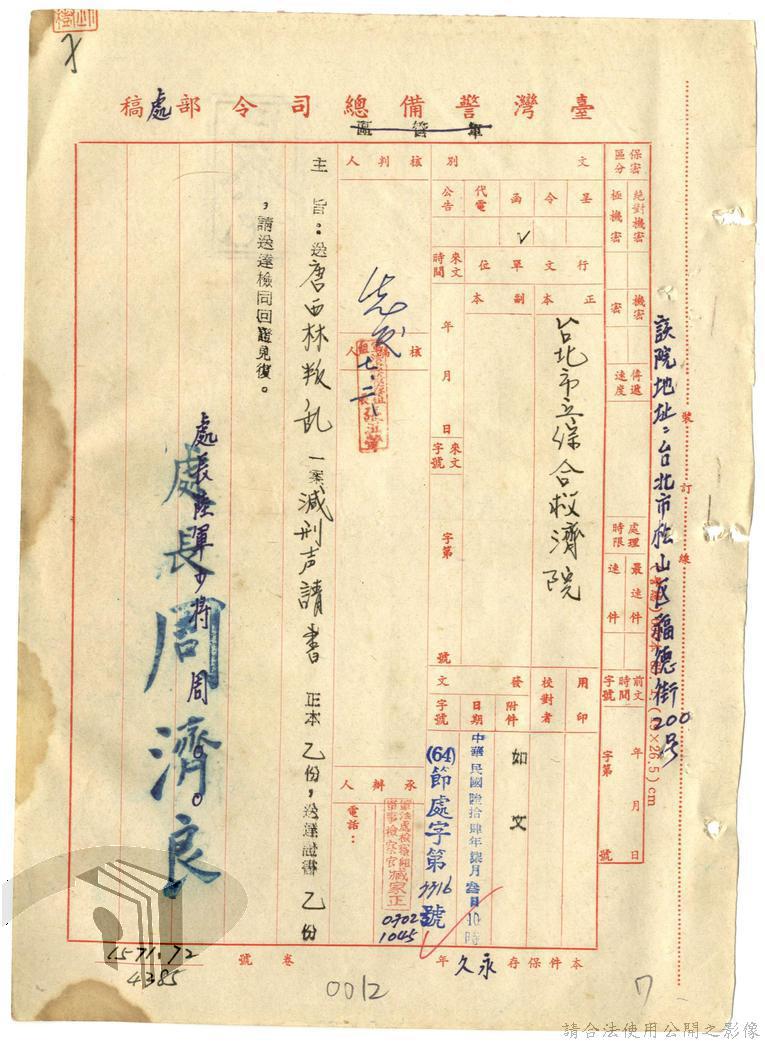 臺灣警備總司令部處稿
軍管區
該院地址：台北市松山區福德街200号
裝訂線
保密區分
絕對機密
極機密
機密
密
傳遞速度
處理時限
最速件
速件
前文時間字號
年月日
字第號
×26.5)cm
文別
呈
令
函
ˇ
代電
公告
行文單位
正本
副本
台北市立綜合救濟院
來文時間
年月日
來文字號
字第號
用印
校對者
發文
附件
如文
日期
中華民國陸拾肆年柒月叁日10時
字號
(64)節處字第3316號
核判人
核稿人
七、二、
承辦人
軍法處檢察組
軍事檢察官臧家正
0702
1045
電話：
主旨：送唐西林叛乱一案減刑声請書正本乙份，送達證書乙份
，請送達檢同回證見復。
處長陸軍少將周○○
處長周濟良
本件保存永久年
卷號
1571.72
4385
0012
7
請合法使用公開之影像